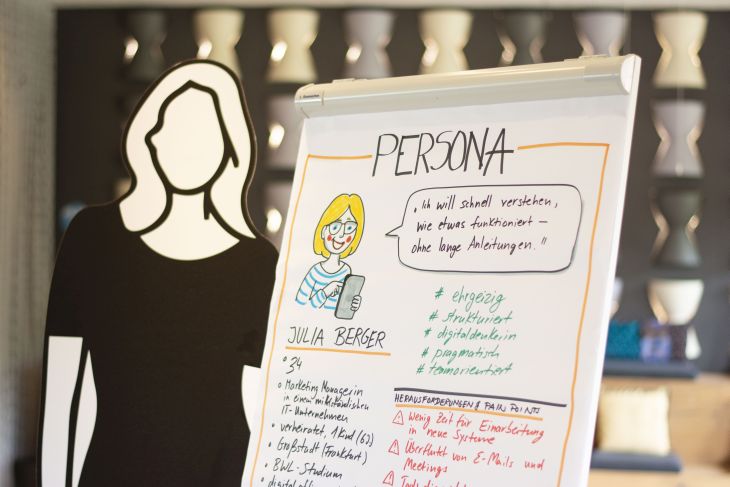 PERSONA
„Ich will schnell verstehen,
wie etwas funktioniert –
ohne lange Anleitungen."
# ehrgeizig
# strukturiert
# digitaldenkerin
# pragmatisch
# teamorientiert
JULIA BERGER
• 34
• Marketing Managerin
in einem mittelständischen
IT-Unternehmen
• verheiratet, 1 Kind (6J)
• Großstadt (Frankfurt)
• BWL-Studium
• digital
HERAUSFORDERUNGEN & PAIN POINTS
Wenig Zeit für Einarbeitung
in neue Systeme
Überflutet von E-Mails und
Meetings